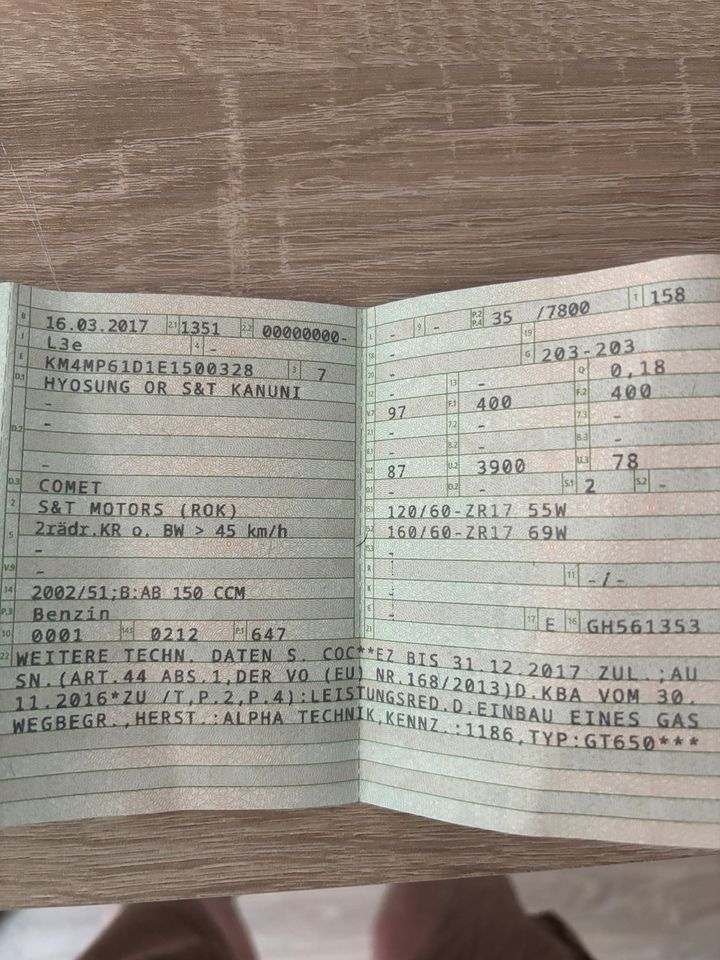 B 16.03.2017 2.1 1351 2.2 00000000-
J L3e 4 -
E KM4MP61D1E1500328 3 7
D.1 HYOSUNG OR S&T KANUNI
-
D.2 -
-
D.3 COMET
2 S&T MOTORS (ROK)
5 2rädr.KR o. BW > 45 km/h
-
V.9 -
14 2002/51;B:AB 150 CCM
P.3 Benzin
10 0001 14.1 0212 P.1 647
L - 9 - P.2 P.4 35 /7800 T 158
18 - 19 -
20 - G 203-203
12 - 13 - Q 0,18
V.7 97 F.1 400 F.2 400
7.1 - 7.2 - 7.3 -
8.1 - 8.2 - 8.3 -
U.1 87 U.2 3900 U.3 78
O.1 - O.2 - S.1 2 S.2 -
15.1 120/60-ZR17 55W
15.2 160/60-ZR17 69W
15.3 -
R - 11 -/-
K -
6 - 17 E 16 GH561353
21 -
22 WEITERE TECHN. DATEN S. COC**EZ BIS 31.12.2017 ZUL.;AU
SN.(ART.44 ABS.1,DER VO (EU) NR.168/2013)D.KBA VOM 30.
11.2016*ZU /T,P.2,P.4):LEISTUNGSRED.D.EINBAU EINES GAS
WEGBEGR.,HERST.:ALPHA TECHNIK,KENNZ.:1186,TYP:GT650***